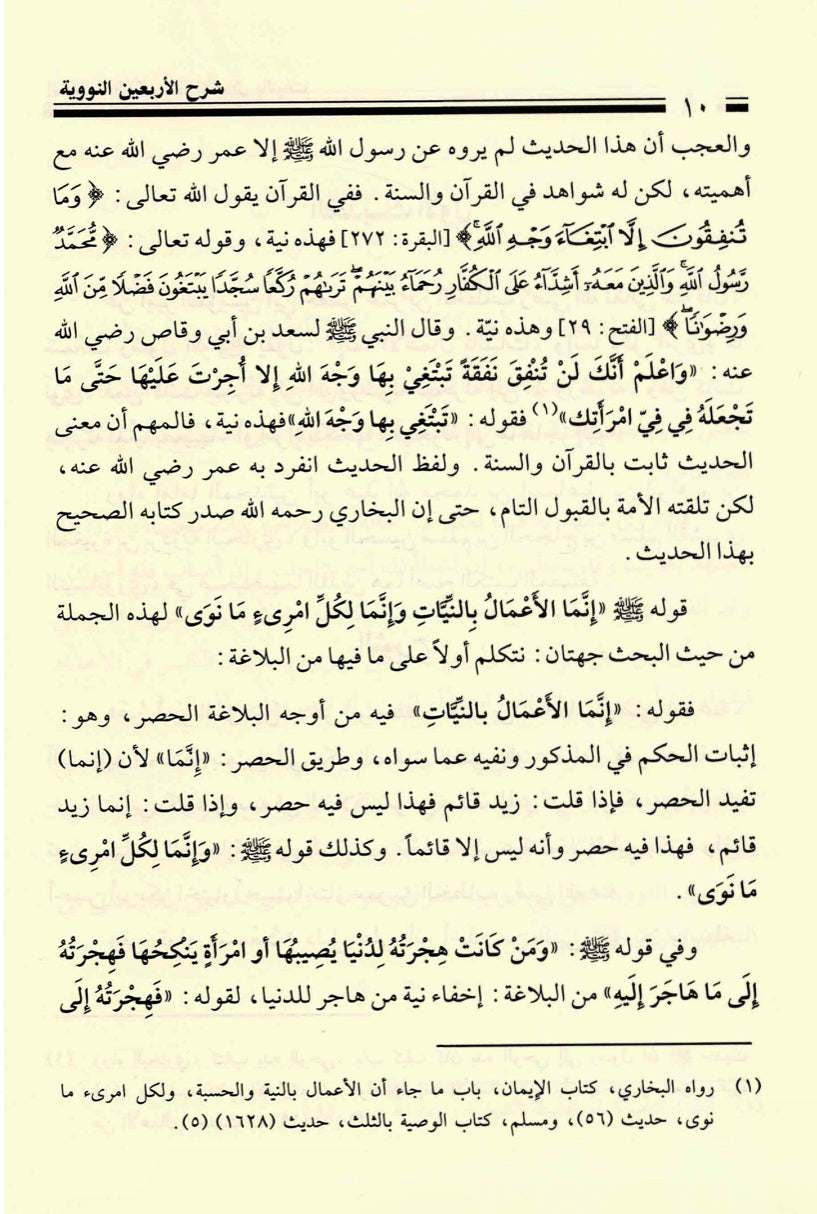 شرح الأربعين النووية
١٠
والعجب أن هذا الحديث لم يروه عن رسول الله ﷺ إلا عمر رضي الله عنه مع
أهميته، لكن له شواهد في القرآن والسنة. ففي القرآن يقول الله تعالى: ﴿ وَمَا
تُنفِقُونَ إِلَّا ٱبْتِغَآءَ وَجْهِ ٱللَّهِۚ﴾ [البقرة: ٢٧٢] فهذه نية، وقوله تعالى: ﴿ مُّحَمَّدٌ
رَّسُولُ ٱللَّهِۚ وَٱلَّذِينَ مَعَهُۥٓ أَشِدَّآءُ عَلَى ٱلْكُفَّارِ رُحَمَآءُ بَيْنَهُمْۖ تَرَىٰهُمْ رُكَّعًا سُجَّدًا يَبْتَغُونَ فَضْلًا مِّنَ ٱللَّهِ
وَرِضْوَٰنًاۖ ﴾ [الفتح: ٢٩] وهذه نيّة. وقال النبي ﷺ لسعد بن أبي وقاص رضي الله
عنه: «وَاعْلَمْ أَنَّكَ لَنْ تُنْفِقَ نَفَقَةً تَبْتَغِيْ بِهَا وَجْهَ اللهِ إِلا أُجِرْتَ عَلَيْهَا حَتَّى مَا
تَجْعَلَهُ فِي فِيّ امْرَأَتِك»(١) فقوله: «تَبْتَغِي بِها وَجْهَ اللهِ»فهذه نية، فالمهم أن معنى
الحديث ثابت بالقرآن والسنة. ولفظ الحديث انفرد به عمر رضي الله عنه،
لكن تلقته الأمة بالقبول التام، حتى إن البخاري رحمه الله صدر كتابه الصحيح
بهذا الحديث.
قوله ﷺ «إِنَّمَا الأَعْمَالُ بِالنِّيَّاتِ وَإِنَّمَا لِكُلِّ امْرِىءٍ مَا نَوَى» لهذه الجملة
من حيث البحث جهتان: نتكلم أولاً على ما فيها من البلاغة:
فقوله: «إِنَّمَا الأَعْمَالُ بالنيَّاتِ» فيه من أوجه البلاغة الحصر، وهو:
إثبات الحكم في المذكور ونفيه عما سواه، وطريق الحصر: «إِنَّمَا» لأن (إنما)
تفيد الحصر، فإذا قلت: زيد قائم فهذا ليس فيه حصر، وإذا قلت: إنما زيد
قائم، فهذا فيه حصر وأنه ليس إلا قائماً. وكذلك قوله ﷺ: «وَإِنَّمَا لِكُلِّ امْرِىءٍ
مَا نَوَى».
وفي قوله ﷺ: «وَمَنْ كَانَتْ هِجْرَتُهُ لِدُنْيَا يُصِيبُهَا أو امْرَأَةٍ يَنْكِحُهَا فَهِجْرَتُهُ
إِلَى مَا هَاجَرَ إِلَيهِ» من البلاغة: إخفاء نية من هاجر للدنيا، لقوله: «فَهِجْرَتُهُ إِلَى
(١) رواه البخاري، كتاب الإيمان، باب ما جاء أن الأعمال بالنية والحسبة، ولكل امرىء ما
نوى، حديث (٥٦)، ومسلم، كتاب الوصية بالثلث، حديث (١٦٢٨) (٥).